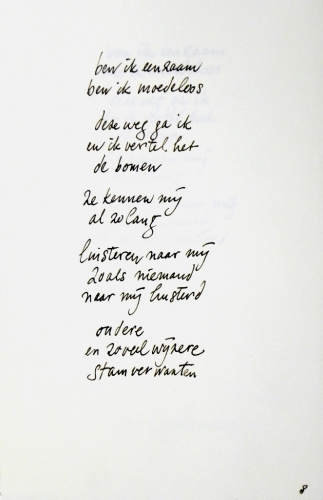 ben ik eenzaam
ben ik moedeloos
deze weg ga ik
en ik vertel het
de bomen
ze kennen mij
al zo lang
luisteren naar mij
zoals niemand
naar mij luisterd
oudere
en zoveel wijzere
stamverwanten
8